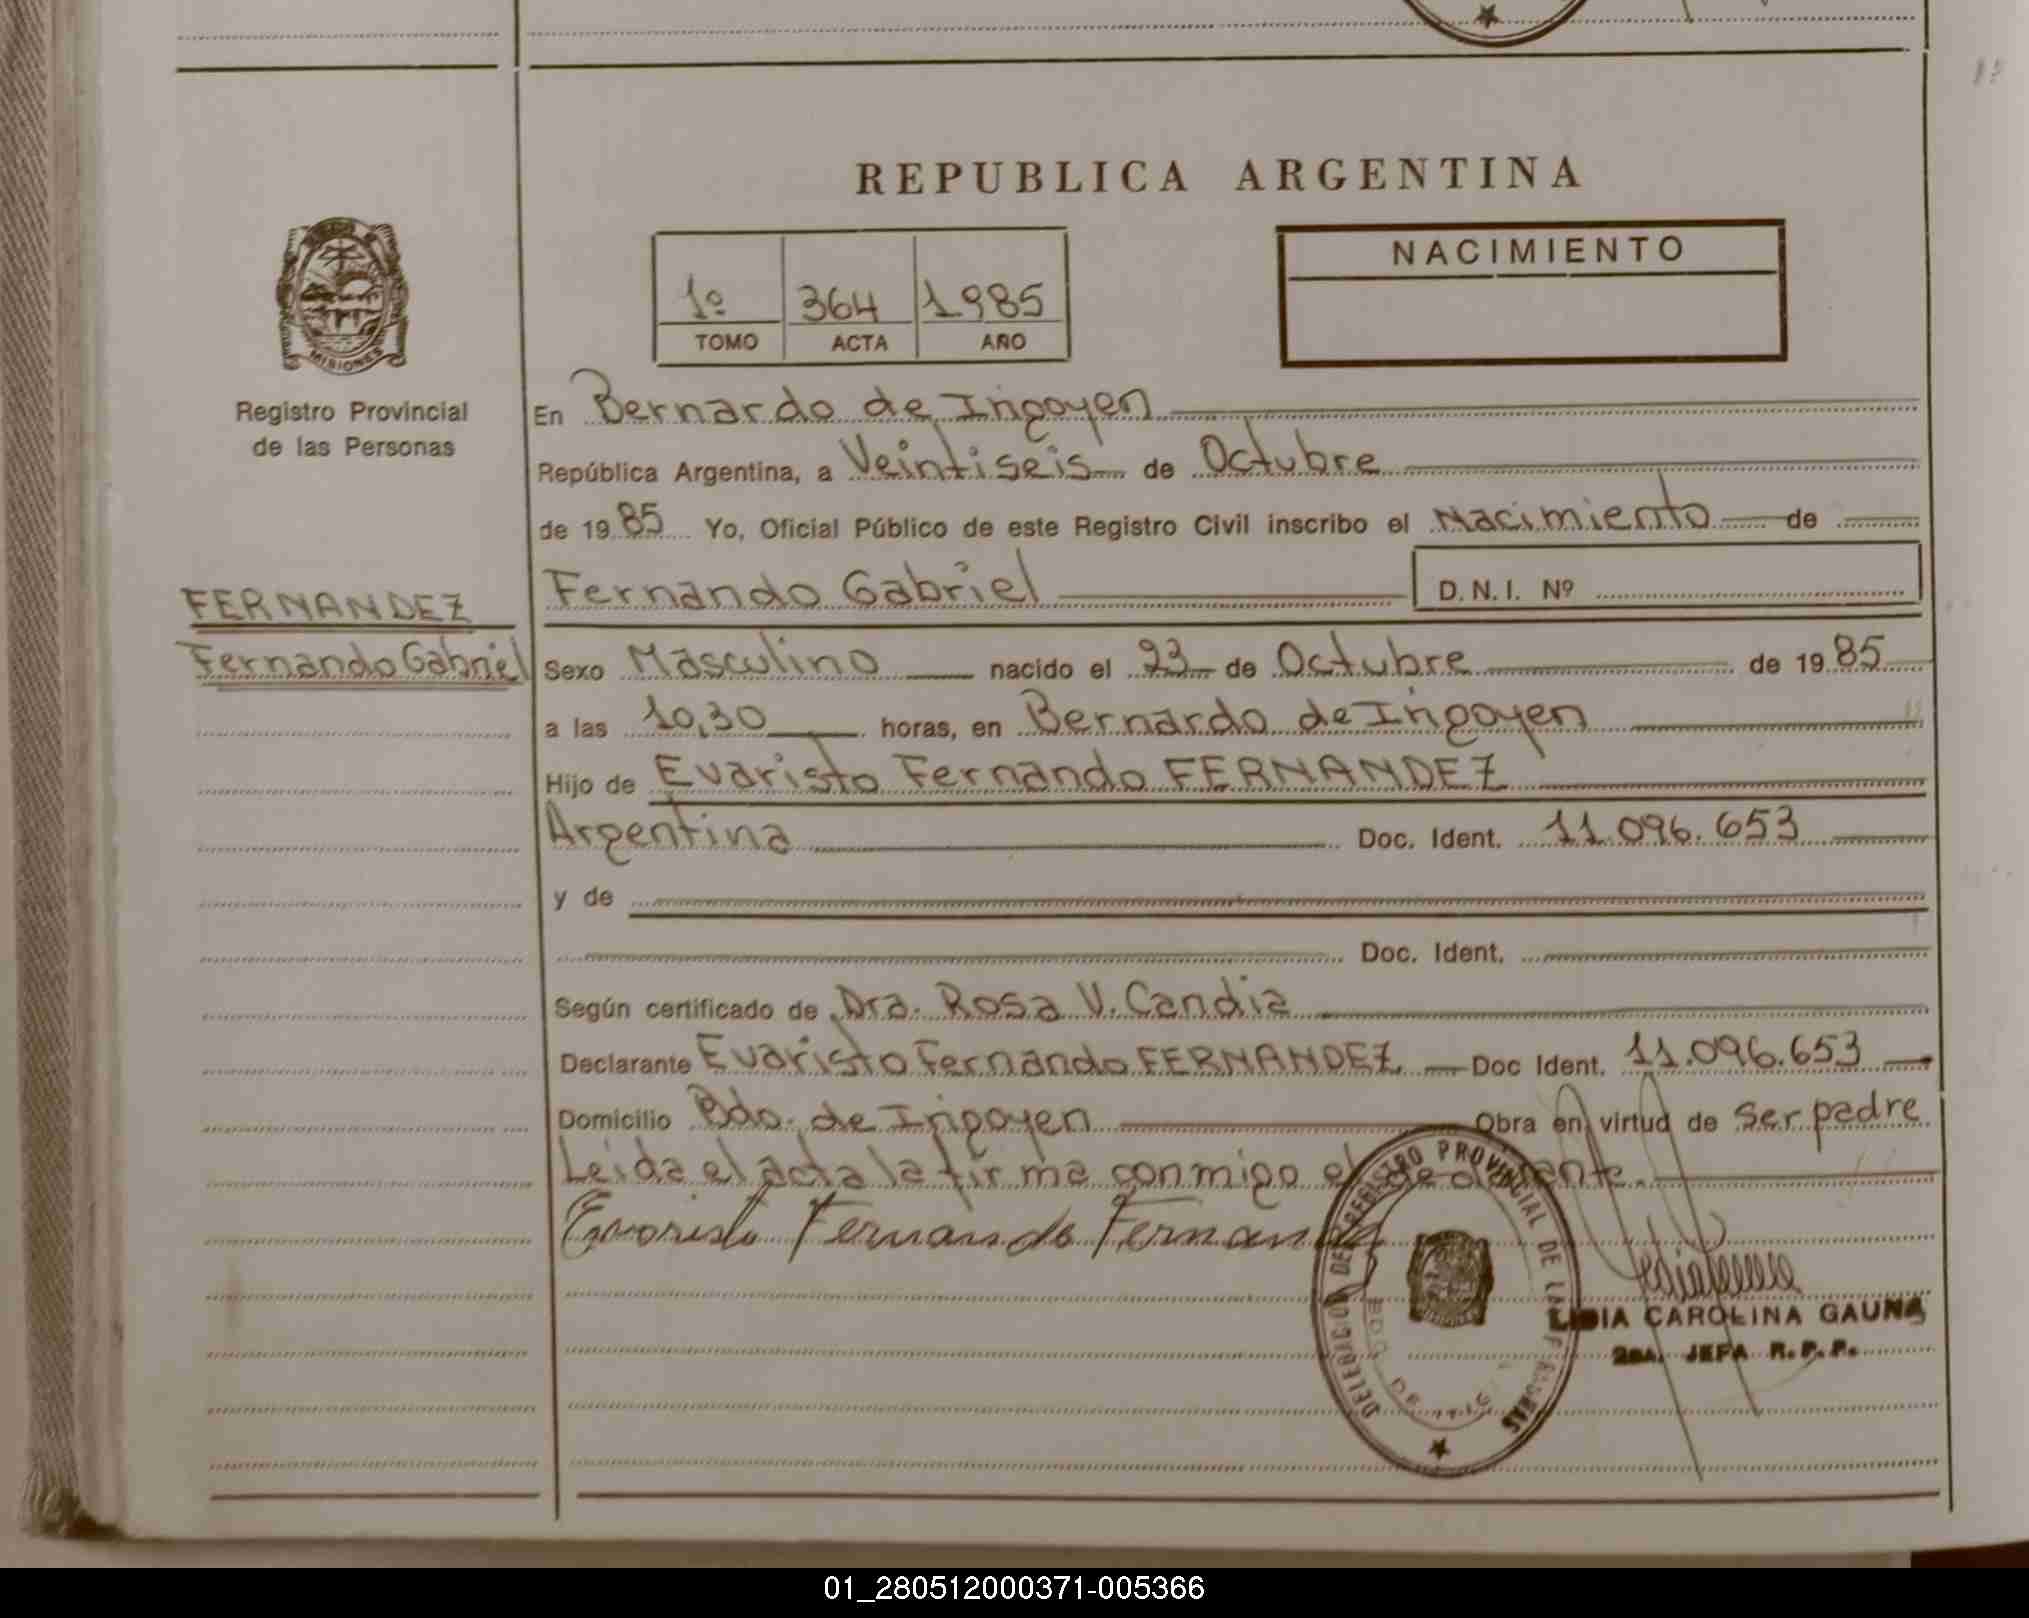 REPUBLICA ARGENTINA
NACIMIENTO
1º 364 1985
TOMO ACTA AÑO
MISIONES
Registro Provincial
de las Personas
FERNANDEZ
Fernando Gabriel
En Bernardo de Irigoyen
República Argentina, a Veintiseis de Octubre
de 1985 Yo, Oficial Público de este Registro Civil inscribo el Nacimiento de
Fernando Gabriel D.N.I. Nº
Sexo Masculino nacido el 23 de Octubre de 1985
a las 10,30 horas, en Bernardo de Irigoyen
Hijo de Evaristo Fernando FERNANDEZ
Argentina Doc. Ident. 11.096.653
y de
Doc. Ident.
Según certificado de Dra. Rosa V. Candia
Declarante Evaristo Fernando FERNANDEZ Doc Ident. 11.096.653
Domicilio Bdo. de Irigoyen Obra en virtud de ser padre
Leida el acta la firma conmigo el declarante.
Evaristo Fernando Fernandez
DELEGACION DEL REGISTRO PROVINCIAL DE LAS PERSONAS
BDO. DE IRIG
LIDIA CAROLINA GAUNA
2DA. JEFA R.P.P.
01_280512000371-005366